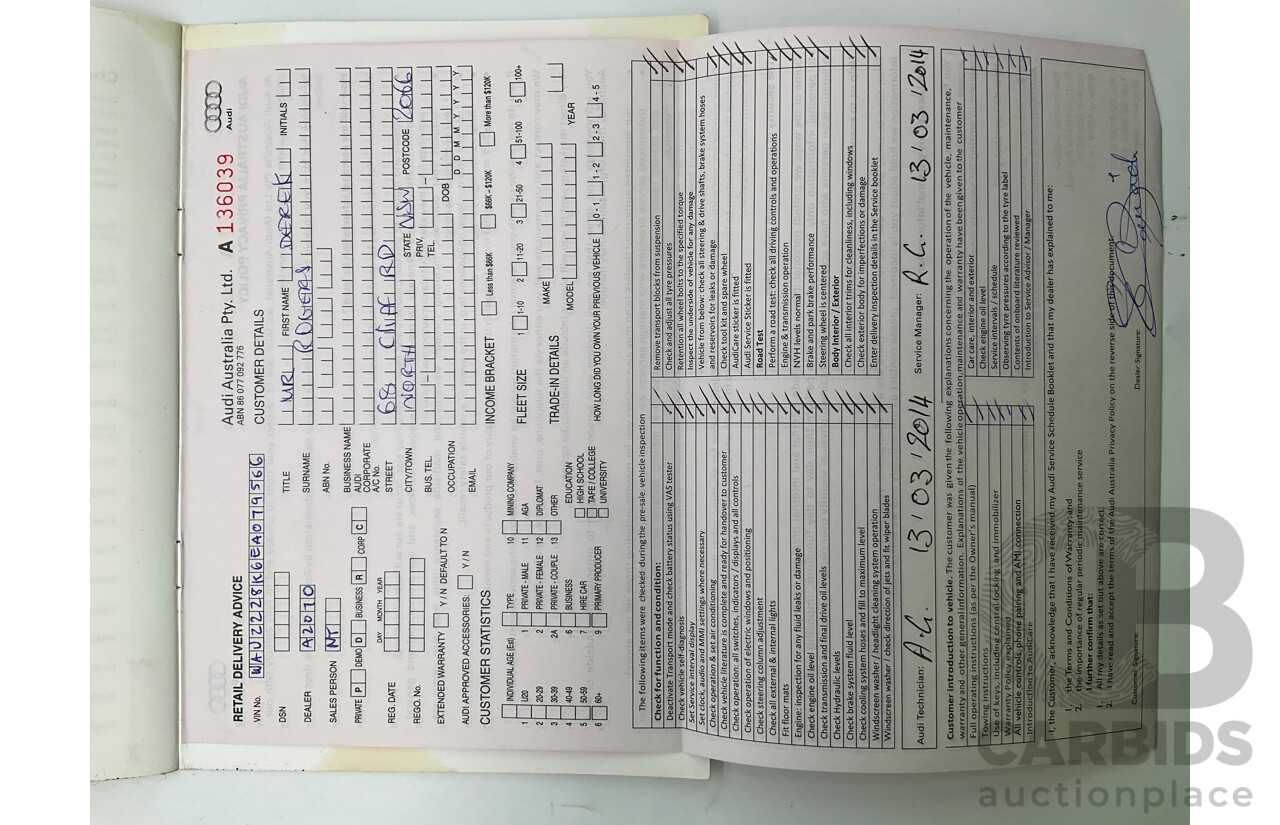 Audi
Audi Australia Pty. Ltd. A 136039
ABN 86 077 092 776
RETAIL DELIVERY ADVICE
VIN No. WAUZZZ8K6EA079566
CUSTOMER DETAILS
DSN
TITLE MR FIRST NAME DEREK INITIALS
DEALER A2070
SURNAME ROGERS
SALES PERSON
ABN No.
BUSINESS NAME
PRIVATE P DEMO D BUSINESS R CORP C
AUDI CORPORATE A/C No.
REG. DATE DAY MONTH YEAR
STREET 68 Cliff RD
CITY/TOWN NORTH STATE NSW POSTCODE 2066
REGO. No.
BUS. TEL. PRIV. TEL.
EXTENDED WARRANTY Y / N / DEFAULT TO N
OCCUPATION DOB D D M M Y Y Y Y
AUDI APPROVED ACCESSORIES: Y / N
EMAIL
CUSTOMER STATISTICS
INCOME BRACKET Less than $66K $66K – $120K More than $120K
INDIVIDUAL AGE (Est) TYPE
1 U20 1 PRIVATE - MALE 10 MINING COMPANY
2 20-29 2 PRIVATE - FEMALE 11 AGA
3 30-39 2A PRIVATE - COUPLE 12 DIPLOMAT
4 40-49 6 BUSINESS 13 OTHER
5 50-59 7 HIRE CAR
6 60+ 9 PRIMARY PRODUCER
EDUCATION
HIGH SCHOOL
TAFE / COLLEGE
UNIVERSITY
FLEET SIZE 1 1-10 2 11-20 3 21-50 4 51-100 5 100+
TRADE-IN DETAILS
MAKE
MODEL YEAR
HOW LONG DID YOU OWN YOUR PREVIOUS VEHICLE 0 - 1 1 - 2 2 - 3 4 - 5
The following items were checked during the pre-sale vehicle inspection
Check for function and condition:
Deactivate Transport mode and check battery status using VAS tester
Check vehicle self-diagnosis
Set Service interval display
Set clock, audio and MMI settings where necessary
Check operation & set air conditioning
Check vehicle literature is complete and ready for handover to customer
Check operation: all switches, indicators / displays and all controls
Check operation of electric windows and positioning
Check steering column adjustment
Check all external & internal lights
Fit floor mats
Engine: inspection for any fluid leaks or damage
Check engine oil level
Check transmission and final drive oil levels
Check Hydraulic levels
Check brake system fluid level
Check cooling system hoses and fill to maximum level
Windscreen washer / headlight cleaning system operation
Windscreen washer / check direction of jets and fit wiper blades
Remove transport blocks from suspension
Check and adjust all tyre pressures
Retention all wheel bolts to the specified torque
Inspect the underside of vehicle for any damage
Vehicle from below: check all steering & drive shafts, brake system hoses
and reservoirs for leaks or damage
Check tool kit and spare wheel
AudiCare sticker is fitted
Audi Service Sticker is fitted
Road Test
Perform a road test: check all driving controls and operations
Engine & transmission operation
NVH levels normal
Brake and park brake performance
Steering wheel is centered
Body Interior / Exterior
Check all interior trims for cleanliness, including windows
Check exterior body for imperfections or damage
Enter delivery inspection details in the Service booklet
Audi Technician: A.G. 13 03 2014 Service Manager: R.C. 13 03 2014
Customer introduction to vehicle. The customer was given the following explanations concerning the operation of the vehicle, maintenance,
warranty and other general information. Explanations of the vehicle operation, maintenance and warranty have been given to the customer
Full operating instructions (as per the Owner's manual)
Towing instructions
Use of keys, including central locking and immobilizer
Warranty Policy explained
All vehicle controls, phone pairing and AMI connection
Introduction to AudiCare
Car care, interior and exterior
Check engine oil level
Service intervals / schedule
Observing tyre pressures according to the tyre label
Contents of onboard literature reviewed
Introduction to Service Advisor / Manager
I, the Customer, acknowledge that I have received my Audi Service Schedule Booklet and that my dealer has explained to me:
1. the Terms and Conditions of Warranty; and
2. the importance of regular periodic maintenance service
I further confirm that:
1. All my details as set out above are correct;
2. I have read and accept the terms of the Audi Australia Privacy Policy on the reverse side of this document.
Customer Signature: Dealer Signature:
CARBIDS
auctionplace